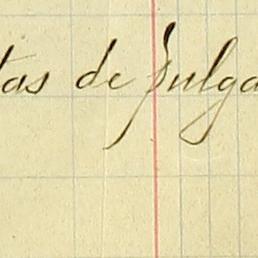 tas de pulga